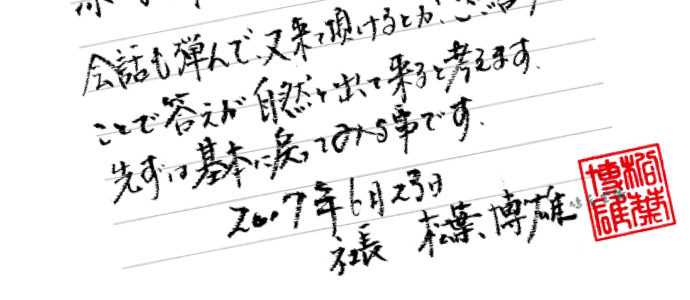 会話も弾んで、又来て頂けるとか、
ことで答えが自然と出て来ると考えます。
先ずは基本に戻ってみる事です。
2017年6月23日
社長 松葉博雄
松葉
博雄